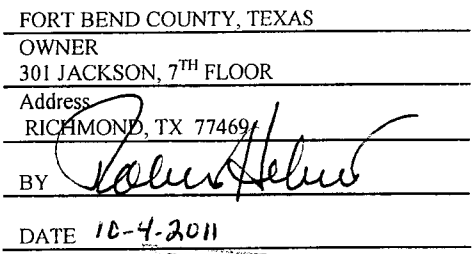 FORT BEND COUNTY, TEXAS
OWNER
301 JACKSON, 7TH FLOOR
Address
RICHMOND, TX 77469
BY
DATE 10-4-2011